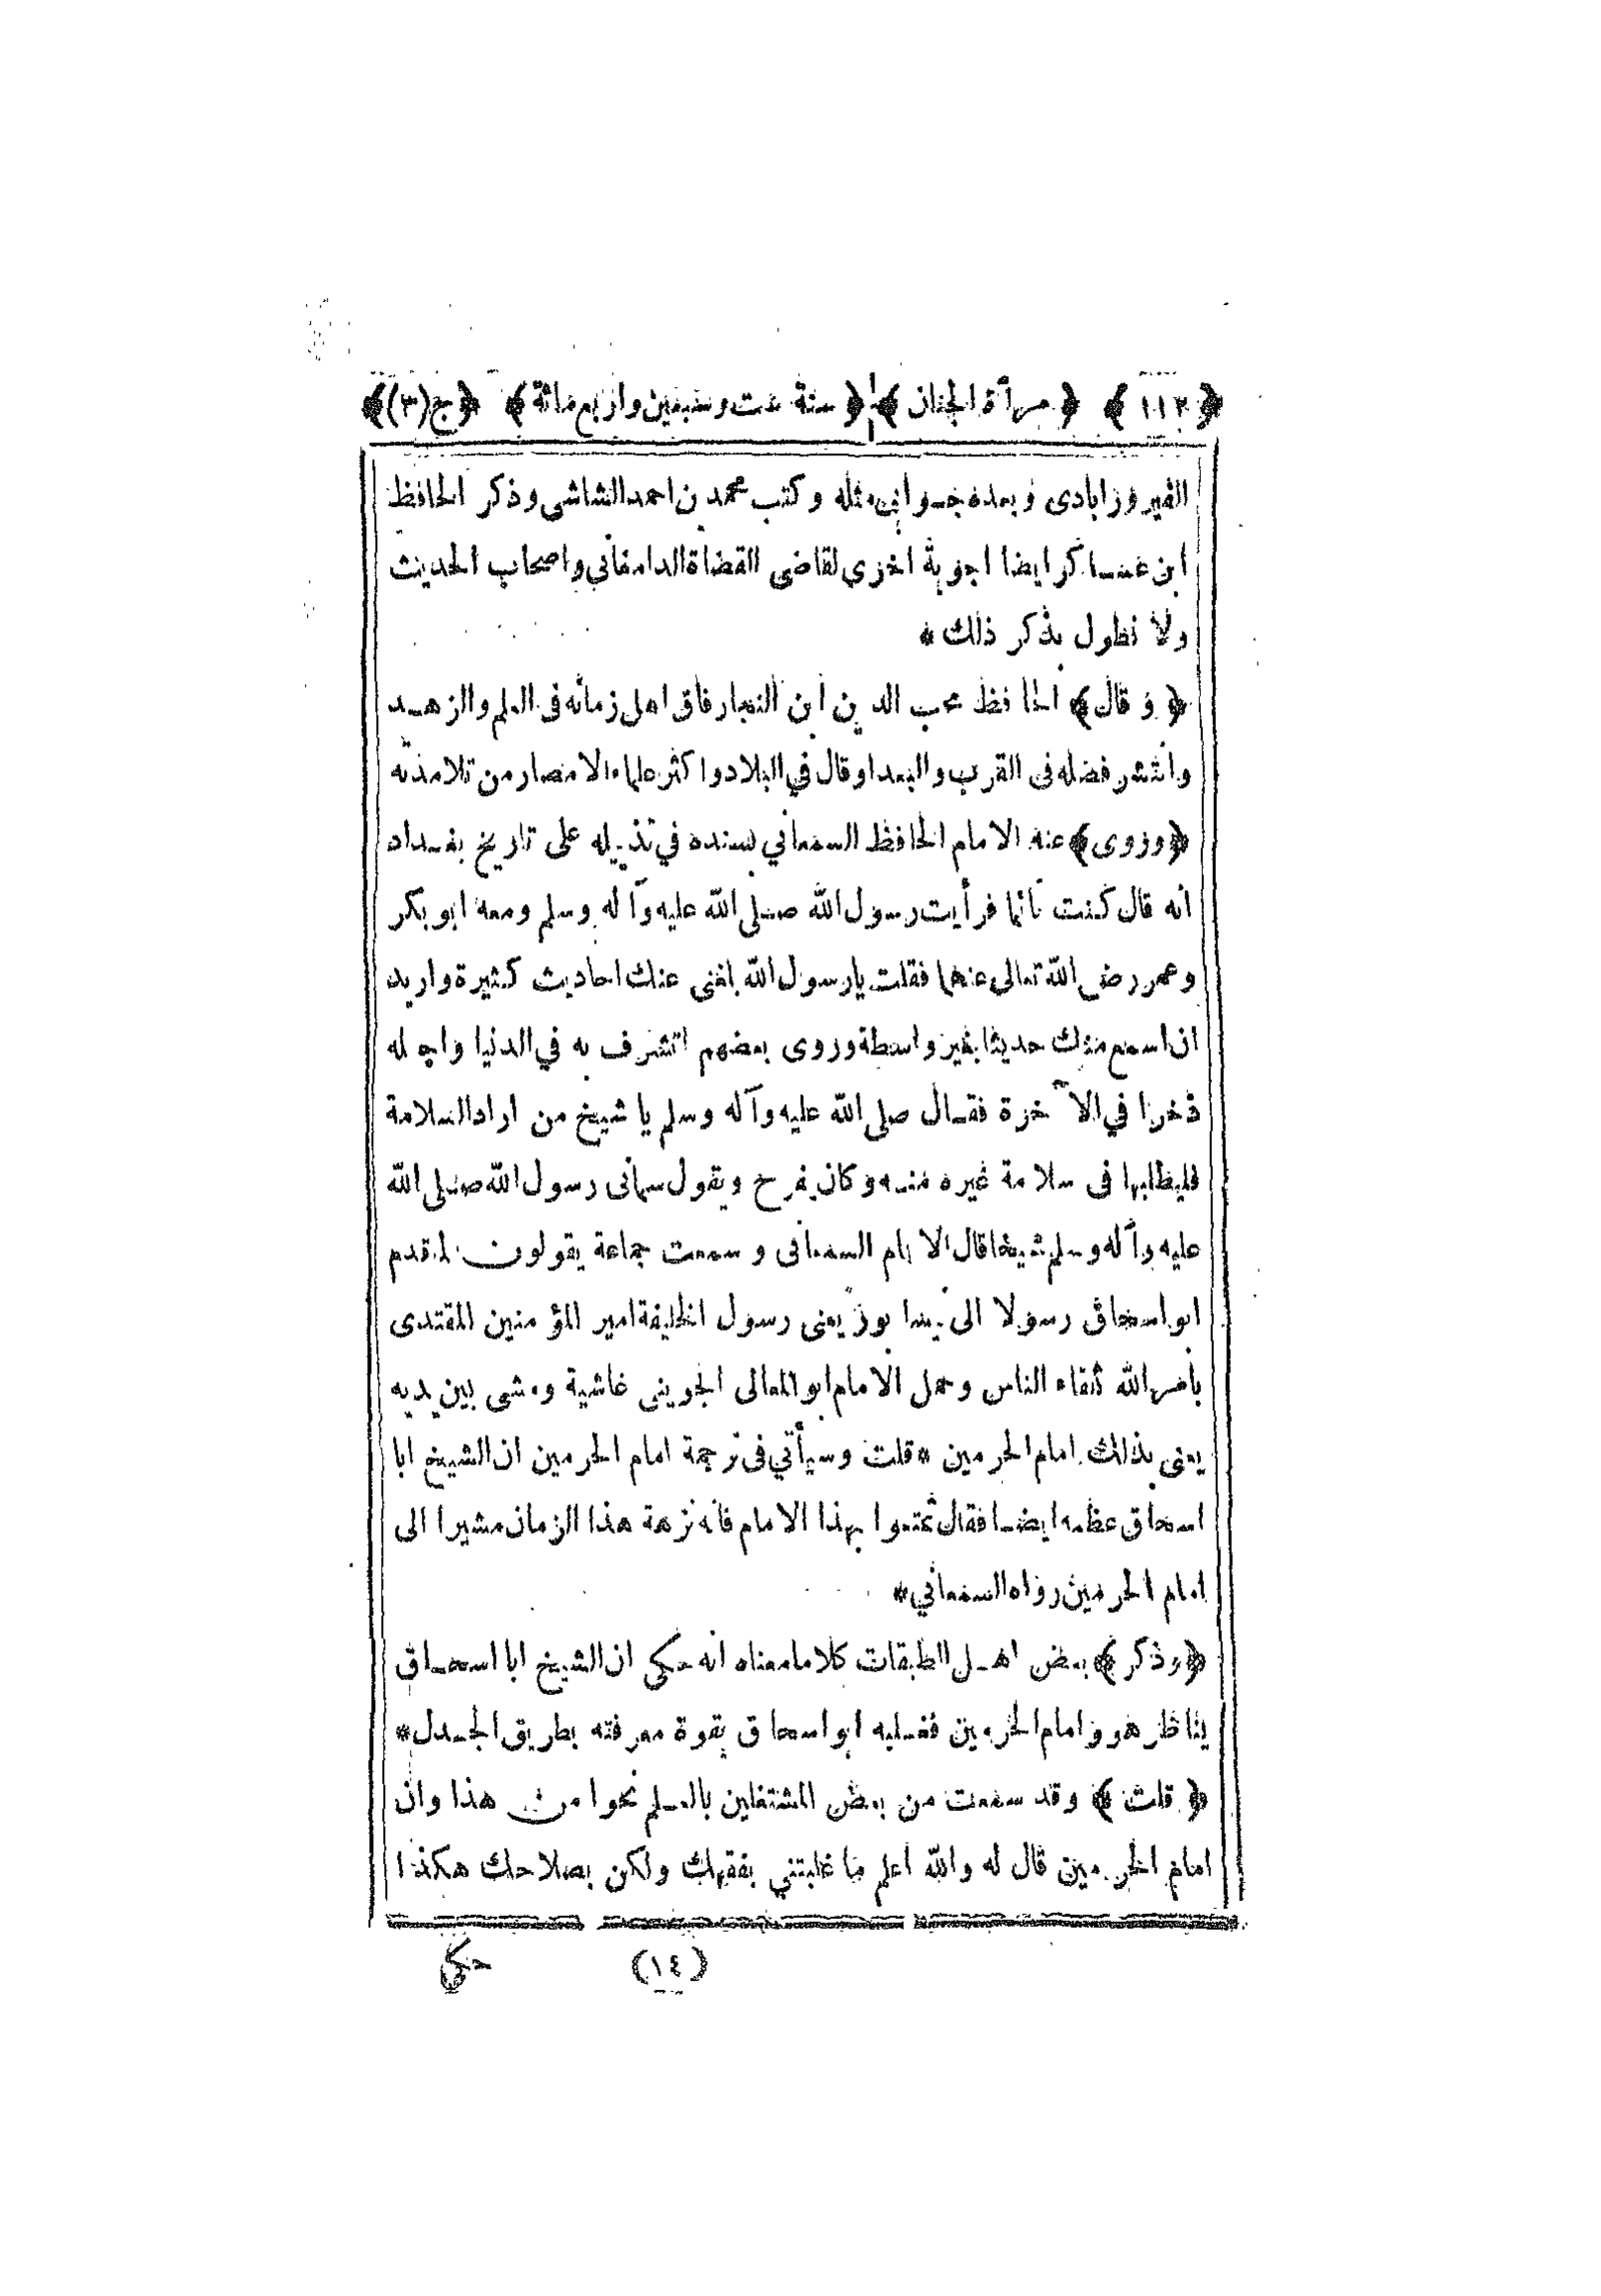 ﴿ ١١٢ ﴾ ﴿ مرآة الجنان ﴾ ﴿ سنة ست وسبعين واربع مائة ﴾ ﴿ ج (٣) ﴾
الفيروزابادى وبعده جوابى مثله وكتب محمد بن احمد الشاشى وذكر الحافظ
ابن عساكر ايضا اجوبة اخرى لقاضى القضاة الدامغاني واصحاب الحديث
ولا نطول بذكر ذلك *
﴿ وقال ﴾ الحافظ محب الدين ابن النجار فاق اهل زمانه فى العلم والزهد
وانتشر فضله فى القرب والبعد او قال في البلاد واكثر علماء الامصار من تلامذته
﴿ وروى ﴾ عنه الامام الحافظ السمعاني بسنده في تذييله على تاريخ بغداد
انه قال كنت نائما فرأيت رسول الله صلى الله عليه وآله وسلم ومعه ابو بكر
وعمر رضى الله تعالى عنهما فقلت يا رسول الله بلغنى عنك احاديث كثيرة واريد
ان اسمع منك حديثا بغير واسطة وروى بعضهم اتشرف به في الدنيا واجعله
ذخرا في الآخرة فقال صلى الله عليه وآله وسلم يا شيخ من اراد السلامة
فليطلبها فى سلامة غيره منه وكان يفرح ويقول سمانى رسول الله صلى الله
عليه وآله وسلم شيخا قال الامام السمعانى وسمعت جماعة يقولون لما قدم
ابو اسحاق رسولا الى نيسابور يعنى رسول الخليفة امير المؤمنين المقتدى
بامر الله تلقاه الناس وحمل الامام ابو المعالى الجوينى غاشية ومشى بين يديه
يعنى بذلك امام الحرمين * قلت وسيأتي فى ترجمة امام الحرمين ان الشيخ ابا
اسحاق عظمه ايضا فقال تمتعوا بهذا الامام فانه نزهة هذا الزمان مشيرا الى
امام الحرمين رواه السمعاني *
﴿ وذكر ﴾ بعض اهل الطبقات كلاما معناه انه حكى ان الشيخ ابا اسحاق
يناظر هو وامام الحرمين فغلبه ابو اسحاق بقوة معرفته بطريق الجدل *
﴿ قلت ﴾ وقد سمعت من بعض المشتغلين بالعلم نحوا من هذا وان
امام الحرمين قال له والله اعلم ما غلبتني بفقهك ولكن بصلاحك هكذا
(١٤) حكي